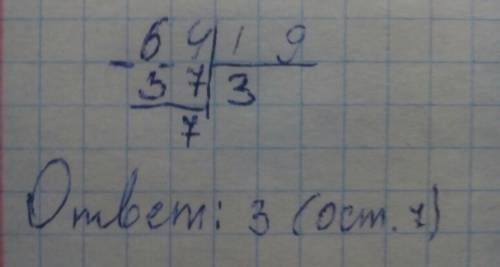 - 64 | 19
37 | 3
7
Ответ: 3 (ост. 7)